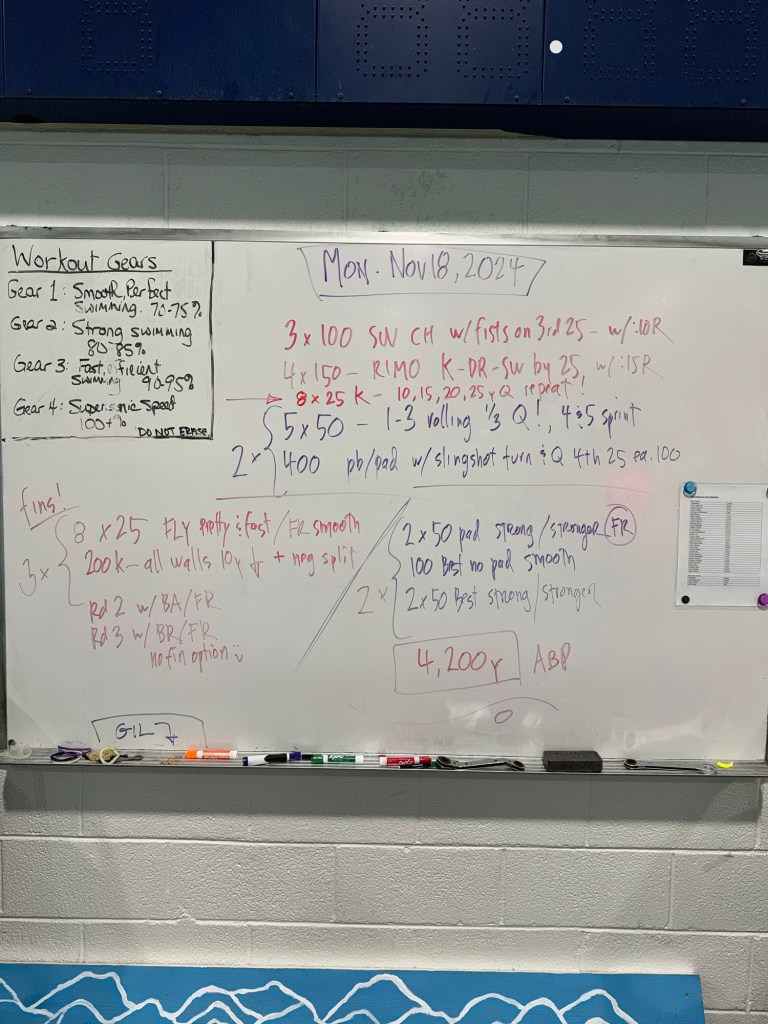 Workout Gears
Gear 1: Smooth, Perfect
Swimming. 70-75%
Gear 2: Strong swimming
80-85%
Gear 3: Fast, efficient
swimming 90-95%
Gear 4: Supersonic Speed
100+%
DO NOT ERASE
MON. NOV 18, 2024
3 x 100 SW CH w/fists on 3rd 25 - w/:10R
4 x 150 - RIMO K-DR-SW by 25, w/:15R
→ 8 x 25 K - 10, 15, 20, 25y Q repeat!
2 x
5 x 50 - 1-3 rolling 1/3 Q!, 4 & 5 sprint
400 pb/pad w/slingshot turn & Q 4th 25 ea. 100
fins!
3 x
8 x 25 FLY pretty & fast/FR smooth
200 K - all walls 10y ↓ + neg split
Rd 2 w/ BA/FR
Rd 3 w/ BR/FR
no fin option
2 x
2 x 50 pad strong/stronger FR
100 Best no pad smooth
2 x 50 Best strong/stronger
4,200y ABP
GIL 7
EXPO